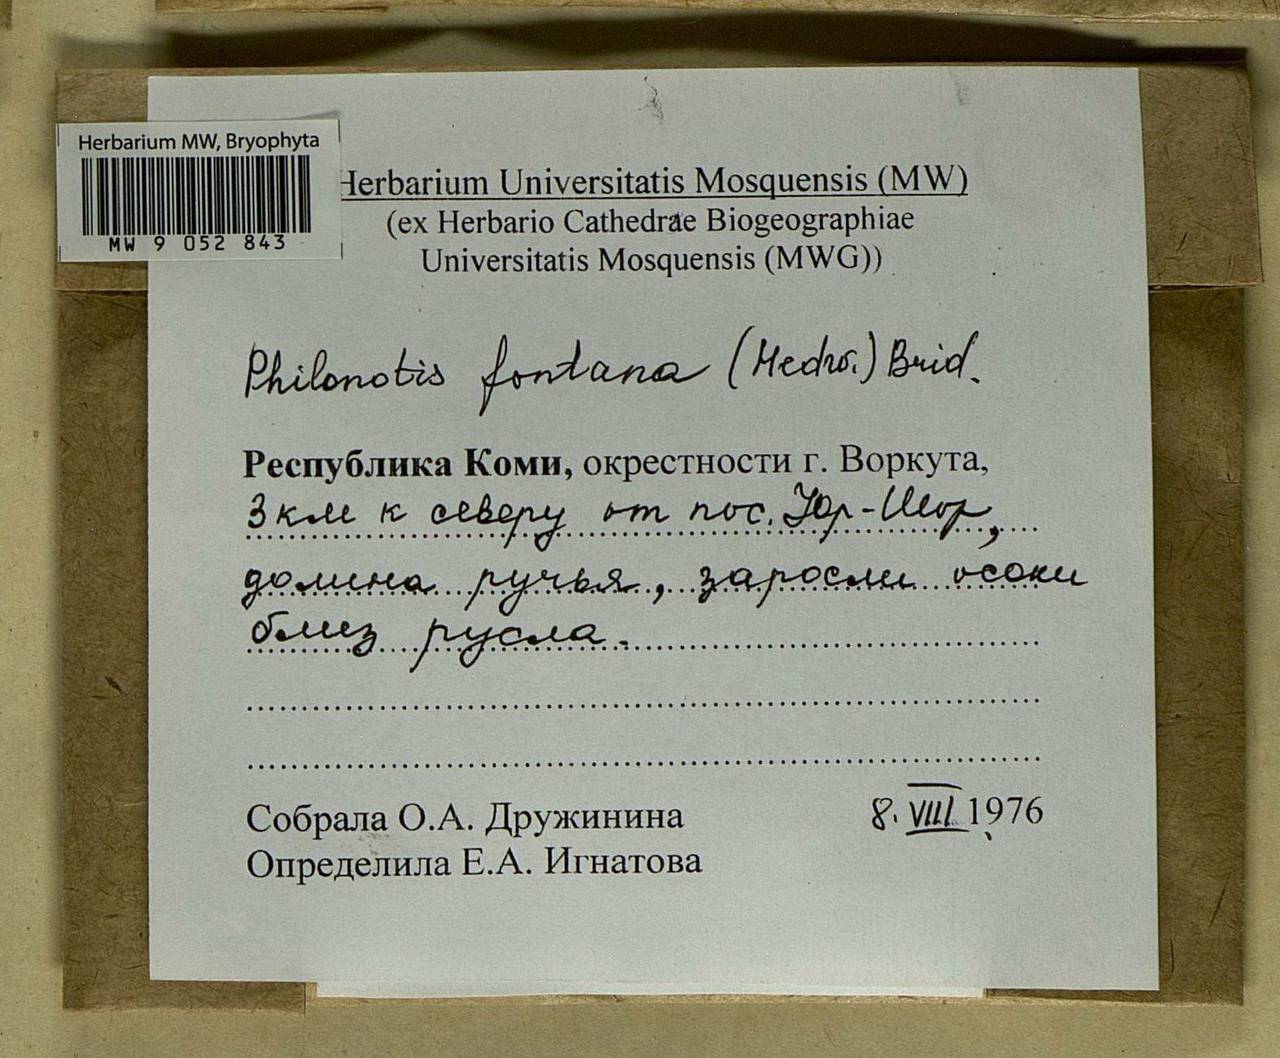 Herbarium MW, Bryophyta
MW 9 052 843
Herbarium Universitatis Mosquensis (MW)
(ex Herbario Cathedrae Biogeographiae
Universitatis Mosquensis (MWG))
Philonotis fontana (Hedw.) Brid.
Республика Коми, окрестности г. Воркута,
3 км к северу от пос. Юр-Шор,
долина ручья, заросли осоки
близ русла.
Собрала О.А. Дружинина 8. VIII 1976
Определила Е.А. Игнатова